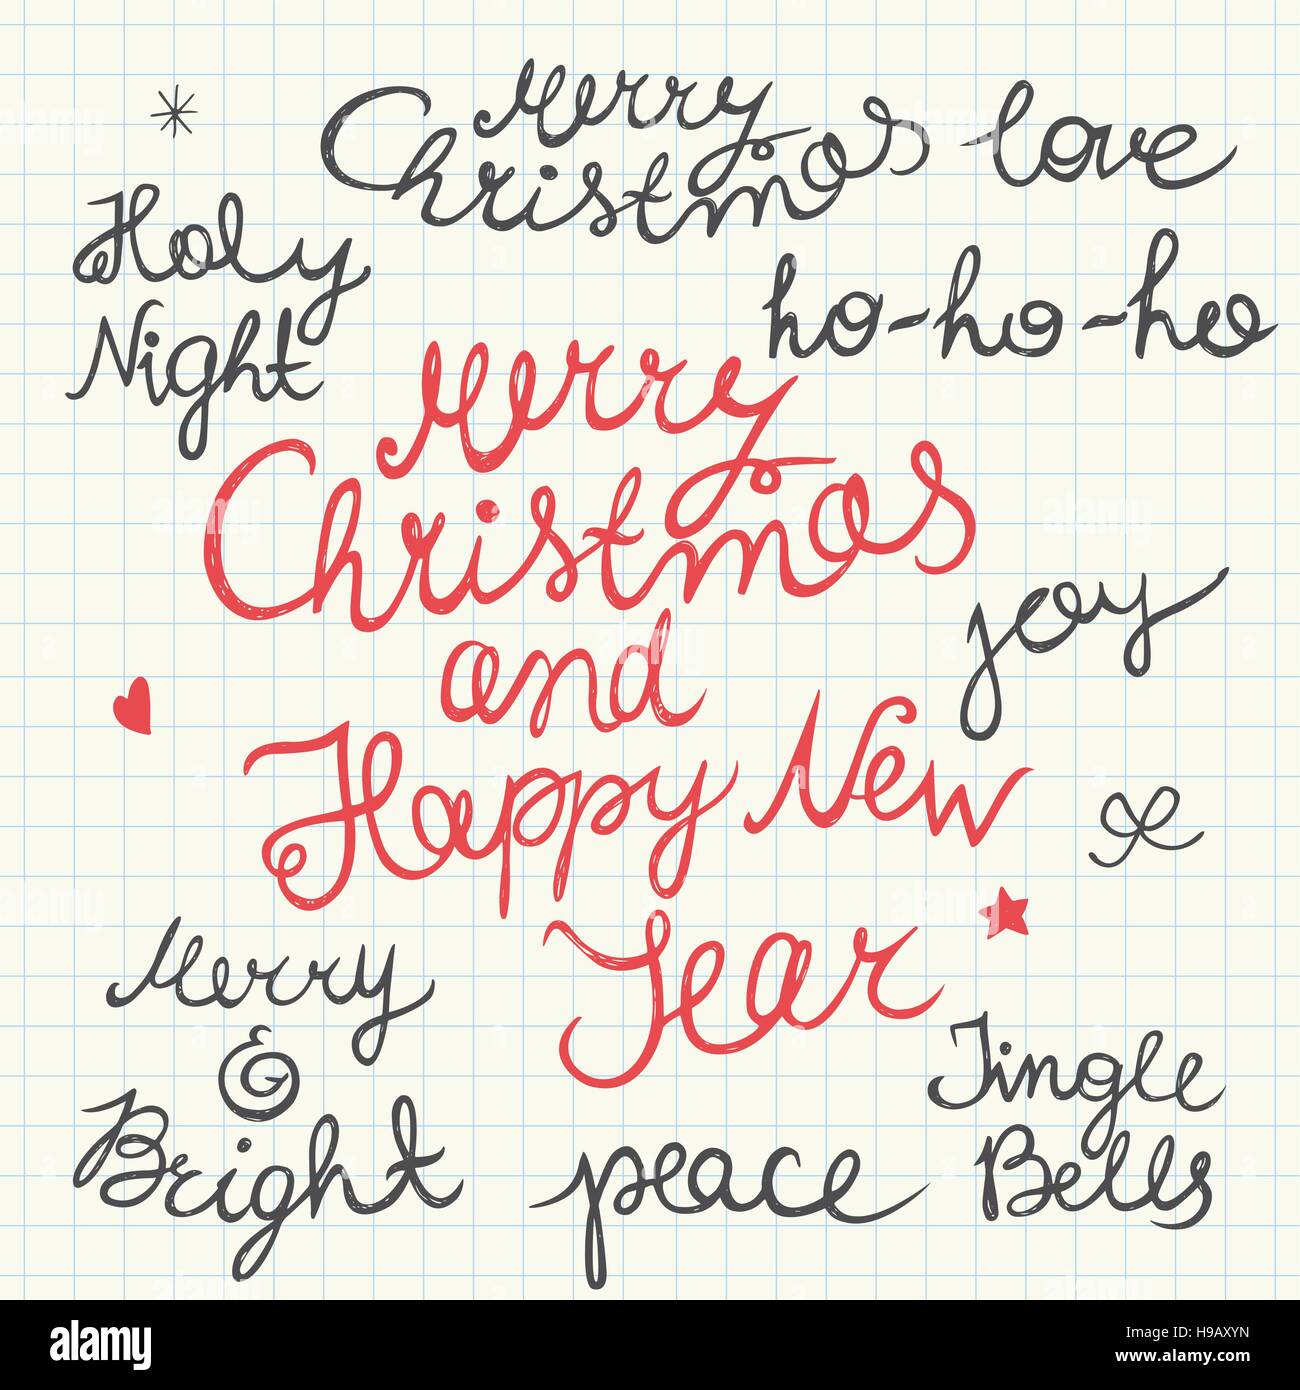 Merry
Christmas
love
Holy
Night
ho-ho-ho
Merry
Christmas
and
Happy New
Year
joy
Merry
&
Bright
peace
Jingle
Bells
alamy
Image ID: H9AXYN
www.alamy.com